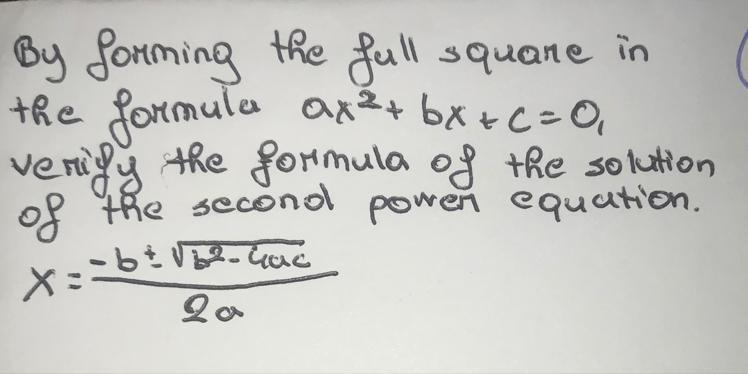 By forming the full square in
the formula ax²+ bx + c = 0,
verify the formula of the solution
of the second power equation.
x = -b ± √b²-4ac
2a